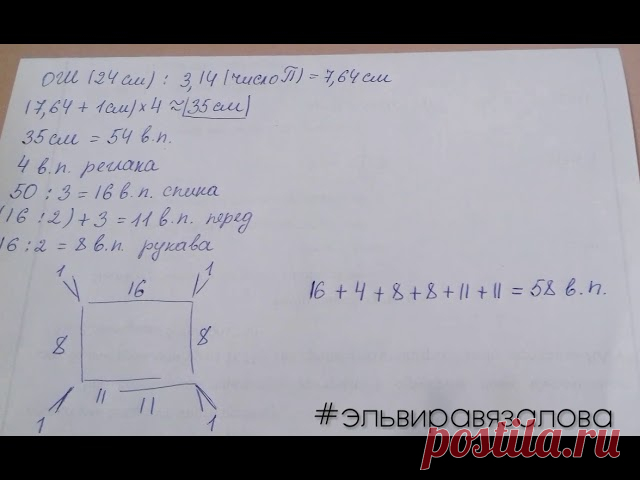 ОШ (24 см) : 3,14 (число П) = 7,64 см
(7,64 + 1 см) × 4 ≈ 35 см
35 см = 54 в.п.
4 в.п. реглана
50 : 3 = 16 в.п. спина
(16 : 2) + 3 = 11 в.п. перед
16 : 2 = 8 в.п. рукава
1 1
16
16 + 4 + 8 + 8 + 11 + 11 = 58 в.п.
8 8
11 11
1 1
#эльviraвязалова
postila.ru